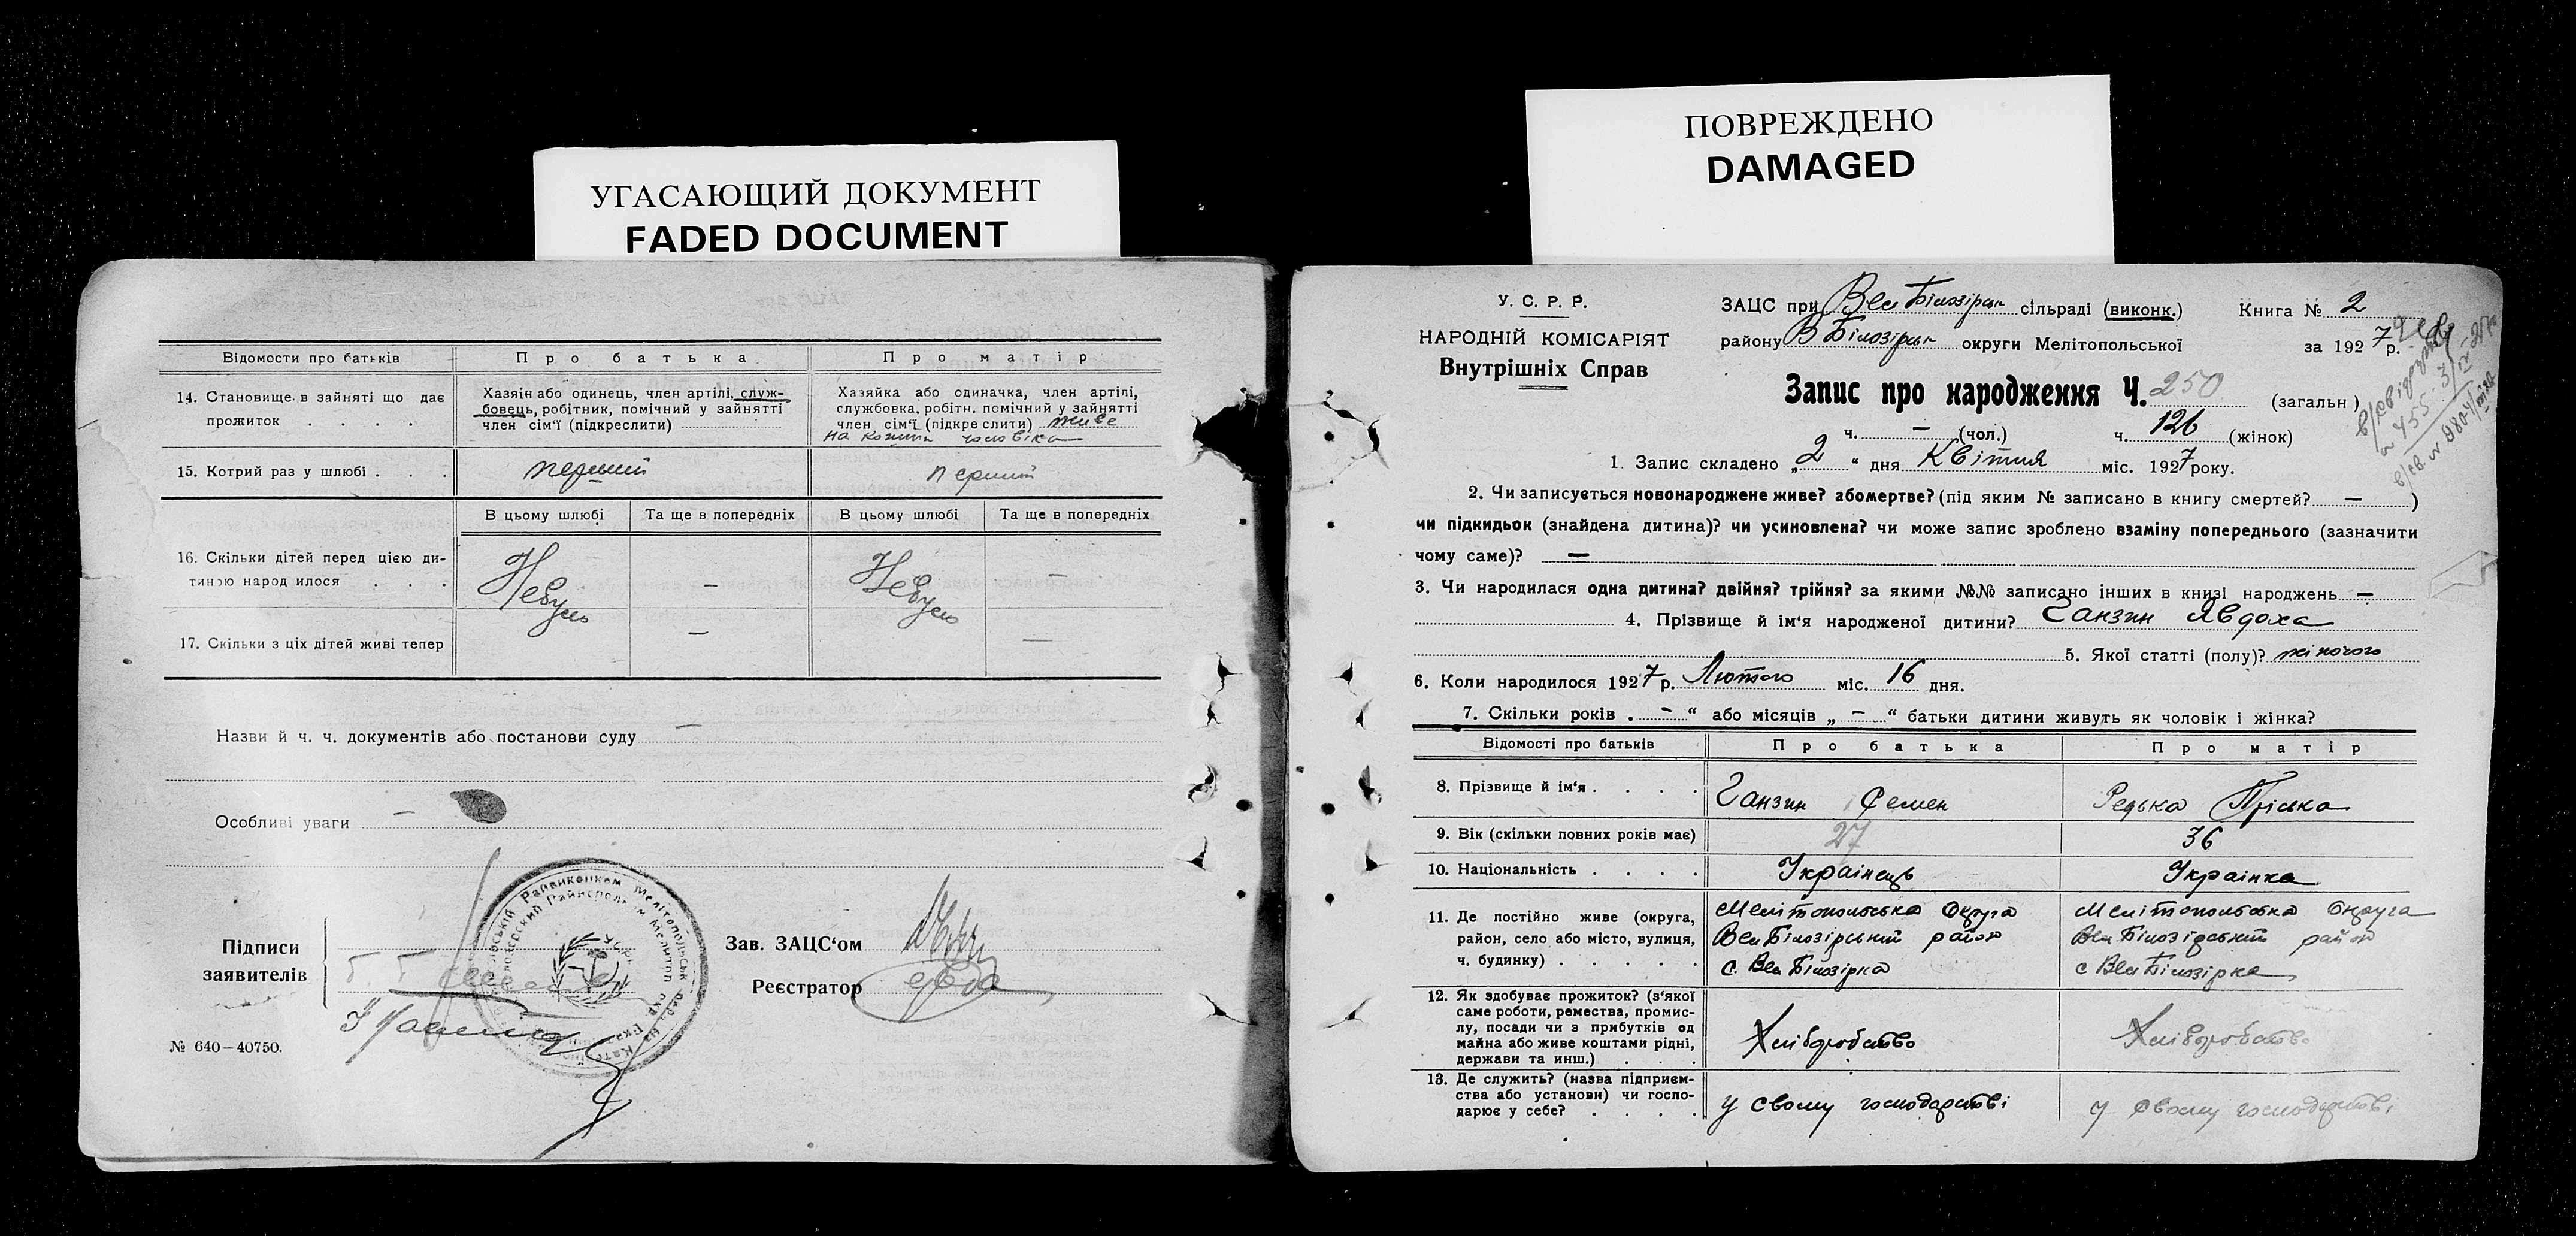 УГАСАЮЩИЙ ДОКУМЕНТ
FADED DOCUMENT
Відомости про батьків
Про батька
Про матір
14. Становище в зайняті що дає прожиток . . . .
Хазяїн або одинець, член артілі, служ-
бовець, робітник, помічний у зайнятті
член сім'ї (підкреслити)
Хазяйка або одиначка, член артілі,
службовка, робітн. помічний у зайнятті
член сім'ї (підкреслити) живе
на кошти чоловіка
15. Котрий раз у шлюбі . . .
перший
перший
В цьому шлюбі
Та ще в попередніх
В цьому шлюбі
Та ще в попередніх
16. Скільки дітей перед цією ди-
тиною народилося . . .
Небуло
—
Небуло
—
17. Скільки з ціх дітей живі тепер
—
—
Назви й ч. ч. документів або постанови суду —
Особливі уваги —
Підписи
заявителів
Зав. ЗАЦС'ом
Реєстратор
№ 640—40750.
ПОВРЕЖДЕНО
DAMAGED
У. С. Р. Р.
НАРОДНІЙ КОМІСАРІЯТ
Внутрішніх Справ
ЗАЦС при Вел Білозірськ сільраді (виконк.)
Книга № 2
району В Білозірськ округи Мелітопольської
за 1927 р.
Запис про народження Ч. 250 (загальн)
ч. — (чол.) ч. 126 (жінок)
1. Запис складено „2“ дня Квітня міс. 1927 року.
2. Чи записується новонароджене живе? або мертве? (під яким № записано в книгу смертей? — )
чи підкидьок (знайдена дитина)? чи усиновлена? чи може запис зроблено взаміну попереднього (зазначити
чому саме)? —
3. Чи народилася одна дитина? двійня? трійня? за якими №№ записано інших в книзі народжень —
4. Прізвище й ім'я народженої дитини? Ганзин Явдоха
5. Якої статті (полу)? жіночого
6. Коли народилося 1927 р. Лютого міс. 16 дня.
7. Скільки років „ — “ або місяців „ — “ батьки дитини живуть як чоловік і жінка?
Відомості про батьків
Про батька
Про матір
8. Прізвище й ім'я . . . .
Ганзин Семен
Редька Пріська
9. Вік (скільки повних років має)
27
36
10. Національність . . . .
Українець
Українка
11. Де постійно живе (округа,
район, село або місто, вулиця,
ч. будинку) . . . . .
Мелітопольська Округа
Вел Білозірський район
с Вел Білозірка
Мелітопольська Округа
Вел Білозірський район
с Вел Білозірка
12. Як здобуває прожиток? (з'якої
саме роботи, ремества, промис-
лу, посади чи з прибутків од
майна або живе коштами рідні,
держави та инш.) . . .
Хліборобство
Хліборобство
13. Де служить? (назва підприєм-
ства або установи) чи госпо-
дарює у себе? . . . .
у свому господарстві
у свому господарстві